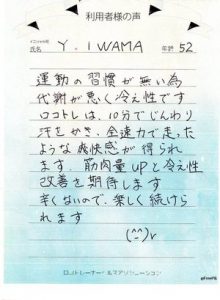 利用者様の声
氏名 Y. IWAMA 年齢 52
運動の習慣が無い為
代謝が悪く冷え性です
ロコトレは、10分でじんわり
汗をかき、全速力で走った
ような爽快感が得られ
ます。筋肉量UPと冷え性
改善を期待します
辛くないので、楽しく続けら
れます
(^^)v